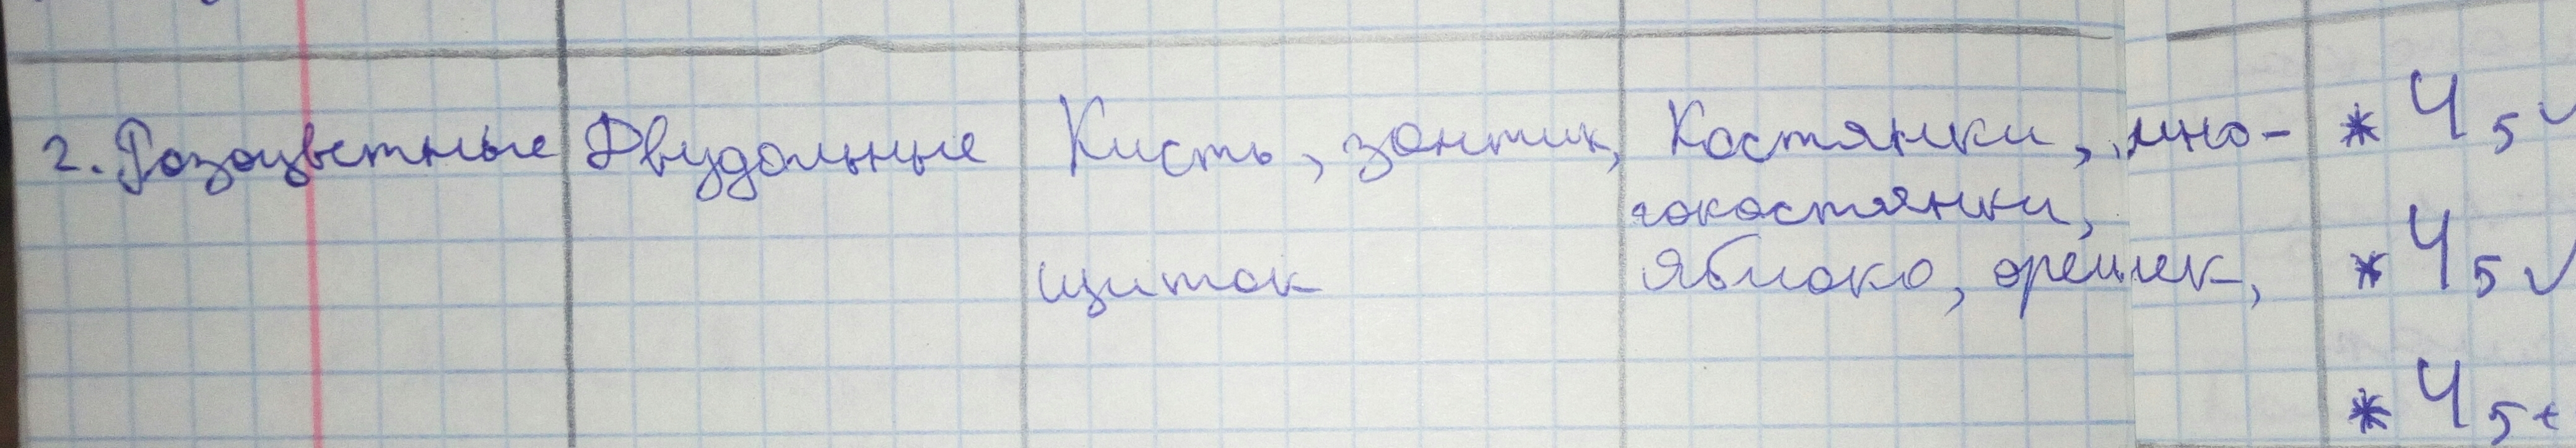 2. Розоцветные Двудольные Кисть, зонтик, Костянки, мно- * Ч 5
гокостянки,
щиток Яблоко, орешек, * Ч 5
* Ч 5+